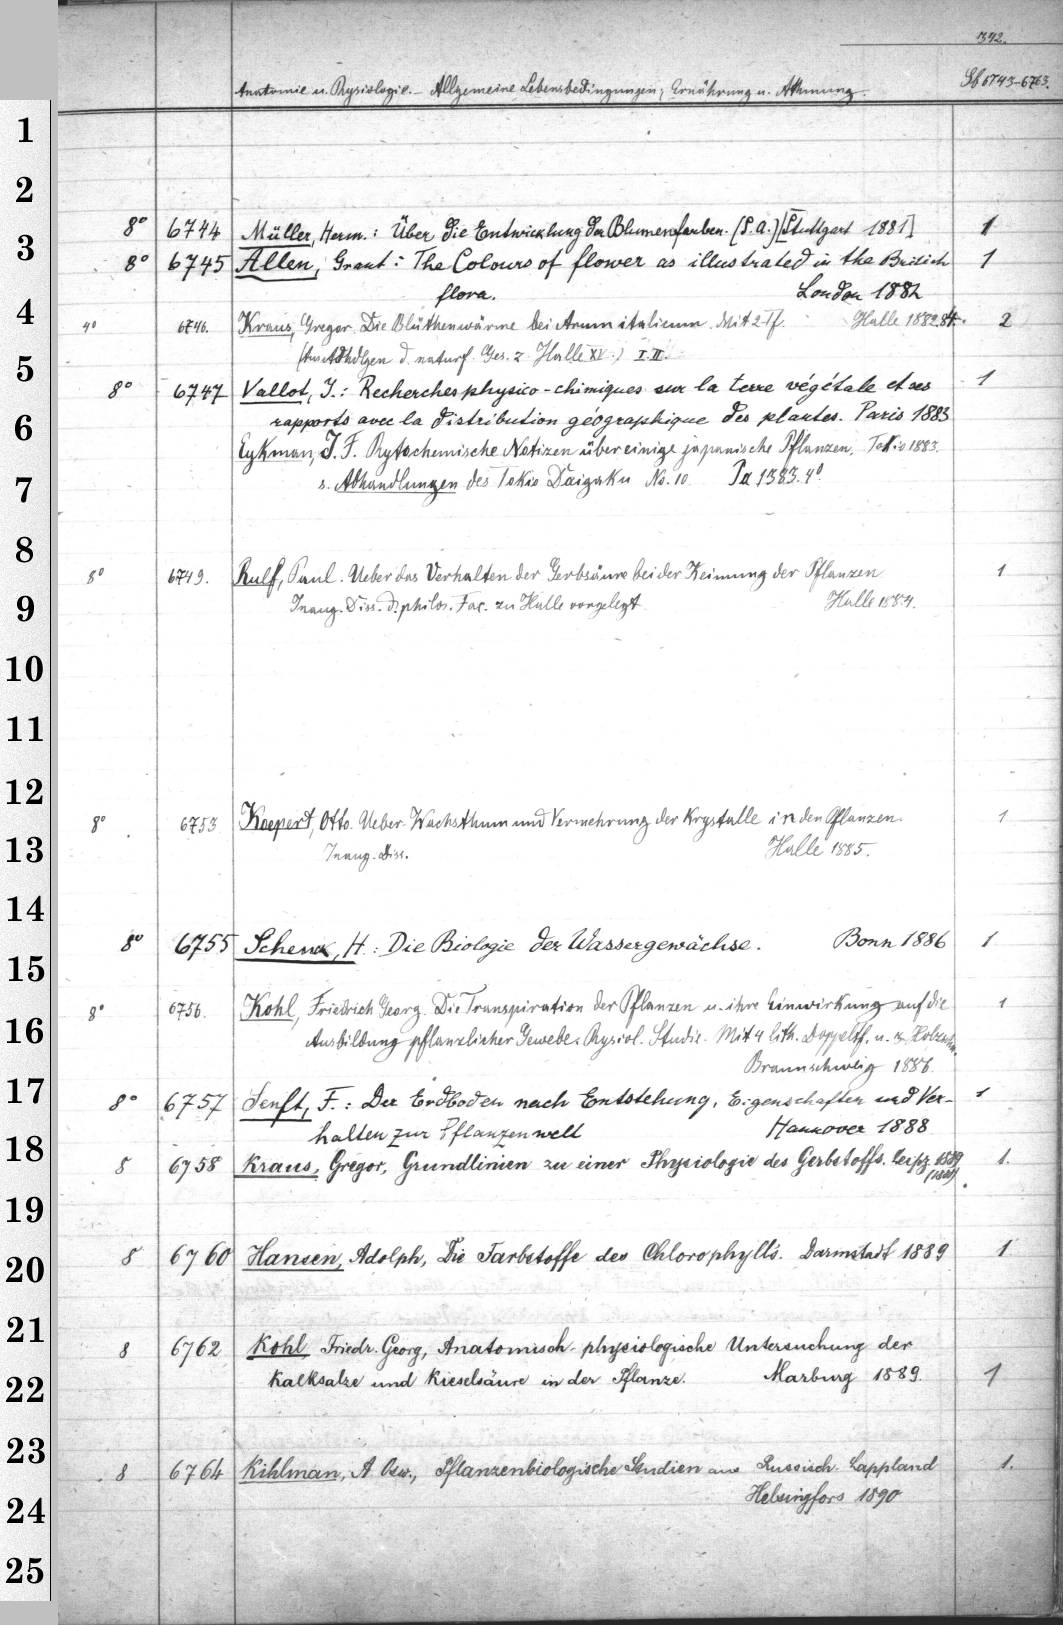 342.
Anatomie u. Physiologie. – Allgemeine Lebensbedingungen; Ernährung u. Athmung. Sb 6743–6763.
1
2
8° 6744 Müller, Herm.: Über die Entwicklung der Blumenfarben. (S. A.) [Stuttgart 1881] 1
3
8° 6745 Allen, Grant: The Colours of flower as illustrated in the British 1
flora. London 1882
4
4° 6746. Kraus, Gregor. Die Blüthenwärme bei Arum italicum. Mit 2 Tf. Halle 1882.84. 2
(Aus Abhdlgen d. naturf. Ges. z. Halle XV.) I. II.
5
8° 6747 Vallot, J.: Recherches physico-chimiques sur la terre végétale et ses 1
rapports avec la distribution géographique des plantes. Paris 1883
6
Eykman, J. F. Phytochemische Notizen über einige japanische Pflanzen. Tokio 1883.
s. Abhandlungen des Tokio Daigaku No. 10 Pa 1383. 4°
7
8
8° 6749. Rulf, Paul. Ueber das Verhalten der Gerbsäure bei der Keimung der Pflanzen 1
Inaug. Diss. d. philos. Fac. zu Halle vorgelegt Halle 1884.
9
10
11
12
8° 6753 Koepert, Otto. Ueber Wachsthum und Vermehrung der Krystalle in den Pflanzen. 1
Inaug. Diss. Halle 1885.
13
14
8° 6755 Schenck, H.: Die Biologie der Wassergewächse. Bonn 1886 1
15
8° 6756. Kohl, Friedrich Georg. Die Transpiration der Pflanzen u. ihre Einwirkung auf die 1
16
Ausbildung pflanzlicher Gewebe. Physiol. Studie. Mit 4 lith. Doppeltf. u. Holzschn.
Braunschweig 1886.
17
8° 6757 Senft, F.: Der Erdboden nach Entstehung, Eigenschaften und Ver- 1
halten zur Pflanzenwelt Hannover 1888
18
8 6758 Kraus, Gregor, Grundlinien zu einer Physiologie des Gerbstoffs. Leipz. 1889 1.
(1888)
19
8 6760 Hansen, Adolph, Die Farbstoffe des Chlorophylls. Darmstadt 1889 1
20
21
8 6762 Kohl, Friedr. Georg, Anatomisch-physiologische Untersuchung der
Kalksalze und Kieselsäure in der Pflanze. Marburg 1889. 1
22
23
8 6764 Kihlman, A. Osw., Pflanzenbiologische Studien aus Russisch Lappland 1.
Helsingfors 1890
24
25